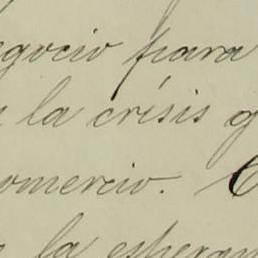 egocio para
la crisis
omercio.
la esperan